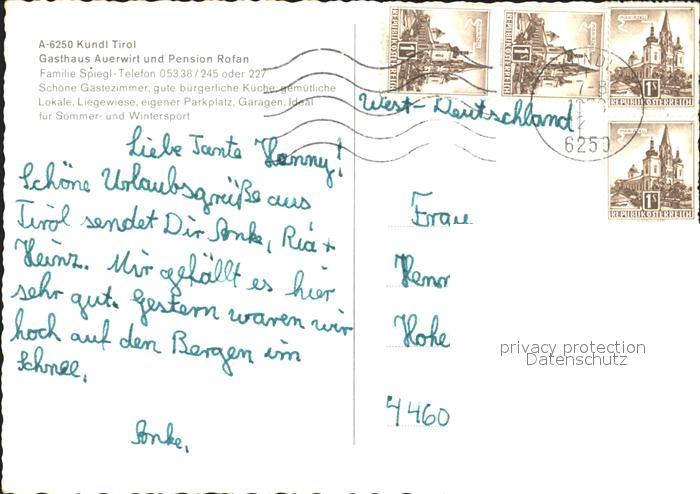 A-6250 Kundl Tirol
Gasthaus Auerwirt und Pension Rofan
Familie Spiegl - Telefon 05338/245 oder 227
Schöne Gästezimmer, gute bürgerliche Küche, gemütliche
Lokale, Liegewiese, eigener Parkplatz, Garagen, Ideal
für Sommer- und Wintersport
Liebe Tante Hanny!
Schöne Urlaubsgrüße aus
Tirol sendet Dir Anke, Ria +
Heinz. Mir gefällt es hier
sehr gut. Gestern waren wir
hoch auf den Bergen im
Schnee.
Anke.
1S
REPUBLIK ÖSTERREICH
1S
REPUBLIK ÖSTERREICH
1S
REPUBLIK ÖSTERREICH
1S
REPUBLIK ÖSTERREICH
6250
West-Deutschland
Frau
Henr
Hohe
4460
privacy protection
Datenschutz